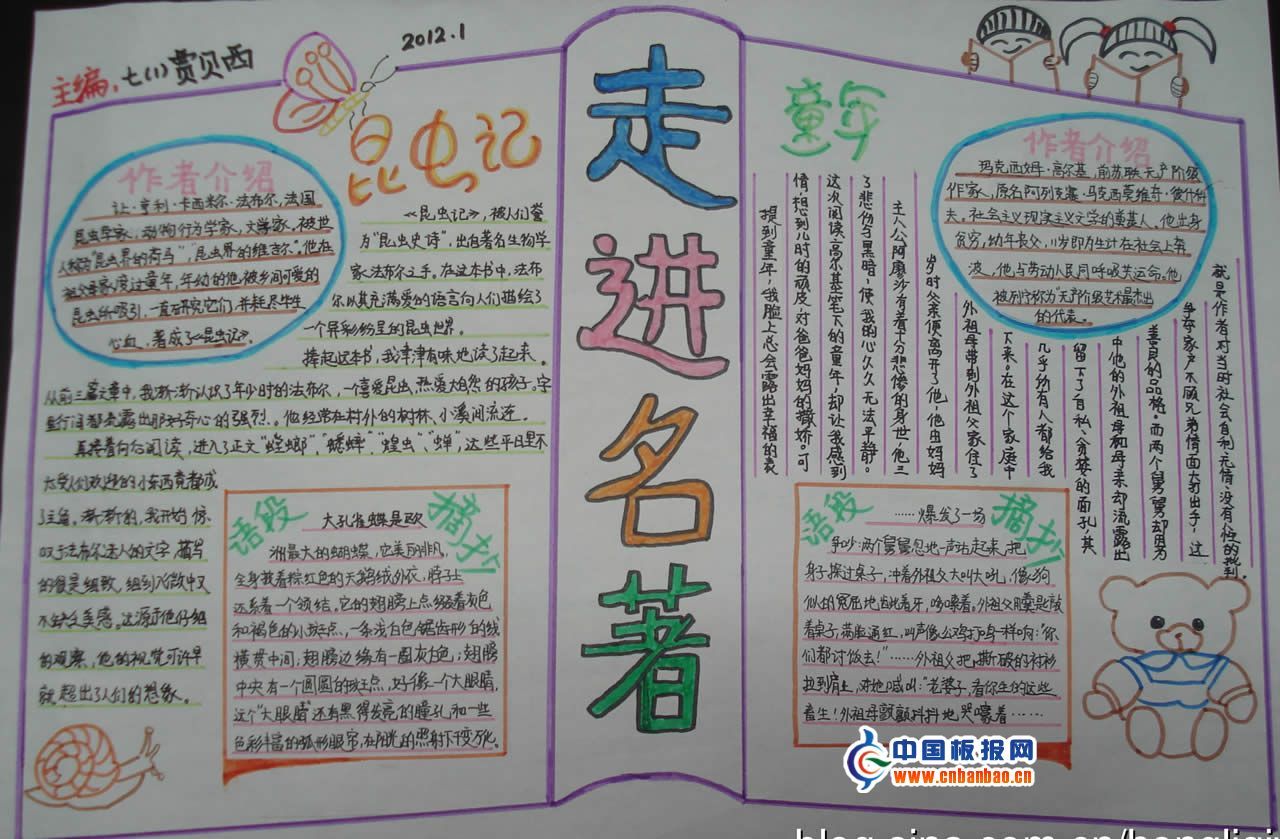 主编：七(1)贾贝西
2012.1
走进名著
昆虫记
作者介绍
让·亨利·卡西米尔·法布尔，法国
昆虫学家，动物行为学家，文学家，被世
人称为"昆虫界的荷马"，"昆虫界的维吉尔"。他在
祖父母家度过童年，年幼的他被乡间可爱的
昆虫所吸引，一直研究它们，并耗尽毕生
心血，著成了《昆虫记》。
《昆虫记》，被人们誉
为"昆虫史诗"，出自著名生物学
家法布尔之手，在这本书中，法布
尔以其充满爱的语言向人们描绘了
一个异彩纷呈的昆虫世界。
捧起这本书，我津津有味地读了起来。
从前三篇文章中，我渐渐认识了年少时的法布尔，一个喜爱昆虫，热爱大自然的孩子。字
里行间都透露出那好奇心的强烈。他经常在村外的树林、小溪间流连。
再接着向后阅读，进入了正文"螳螂""蟋蟀""蝗虫""蝉"，这些平日里不
大受人们欢迎的小东西竟都成
了主角。渐渐的，我开始惊
叹于法布尔迷人的文字，描写
的很是细致，细到入微中又
不缺乏美感。这源于他仔细
的观察，他的视觉可许早
就超出了人们的想象。
语段摘抄
大孔雀蝶是欧
洲最大的蝴蝶，它美丽非凡，
全身披着棕红色的天鹅绒外衣，脖子上
还系着一个领结，它的翅膀上点缀着灰色
和褐色的小斑点，一条浅白色锯齿形的线
横贯中间；翅膀边缘有一圈灰白色；翅膀
中央有一个圆圆的斑点，好像一个大眼睛，
这个"大眼睛"还有黑得发亮的瞳孔和一些
色彩丰富的弧形眼帘，在阳光的照射下变幻。
童年
作者介绍
玛克西姆·高尔基，前苏联无产阶级
作家，原名阿列克塞·马克西莫维奇·彼什科
夫。社会主义现实主义文学的奠基人。他出身
贫穷，幼年丧父，11岁即为生计在社会上奔
波，他与劳动人民同呼吸共运命。他
被列宁称为"无产阶级艺术最杰出
的代表。
提到童年，我脸上总会露出幸福的表
情，想到儿时的顽皮，对爸爸妈妈的撒娇。可
这次阅读，高尔基笔下的童年，却让我感到
了悲伤与黑暗，使我的心久久无法平静。
主人公阿廖沙有着十分悲惨的身世，他三
岁时父亲便离开了他，他由妈妈
外祖母带到外祖父家住了
下来。在这个家庭中
几乎所有人都给我
留下了自私、贪婪的面孔，其
中他的外祖母和母亲却流露出
善良的品格。而两个舅舅却因为
争夺家产不顾兄弟情面大打出手，这
就是作者对当时社会自私、无情、没有人性的批判。
语段摘抄
……爆发了一场
争吵：两个舅舅忽地一声站起来，把
身子探过桌子，冲着外祖父大叫大吼，像小狗
似的冤屈地龇着牙，哆嗦着。外祖父用羹匙敲
着桌子，满脸通红，叫声像公鸡打鸣一样响："你
们都讨饭去！"……外祖父把撕破的衬衫
拉到肩上，对她喊叫："老婆子，看你生的这些
畜生！外祖母颤颤抖抖地哭嚎着……
中国板报网
www.cnbanbao.cn